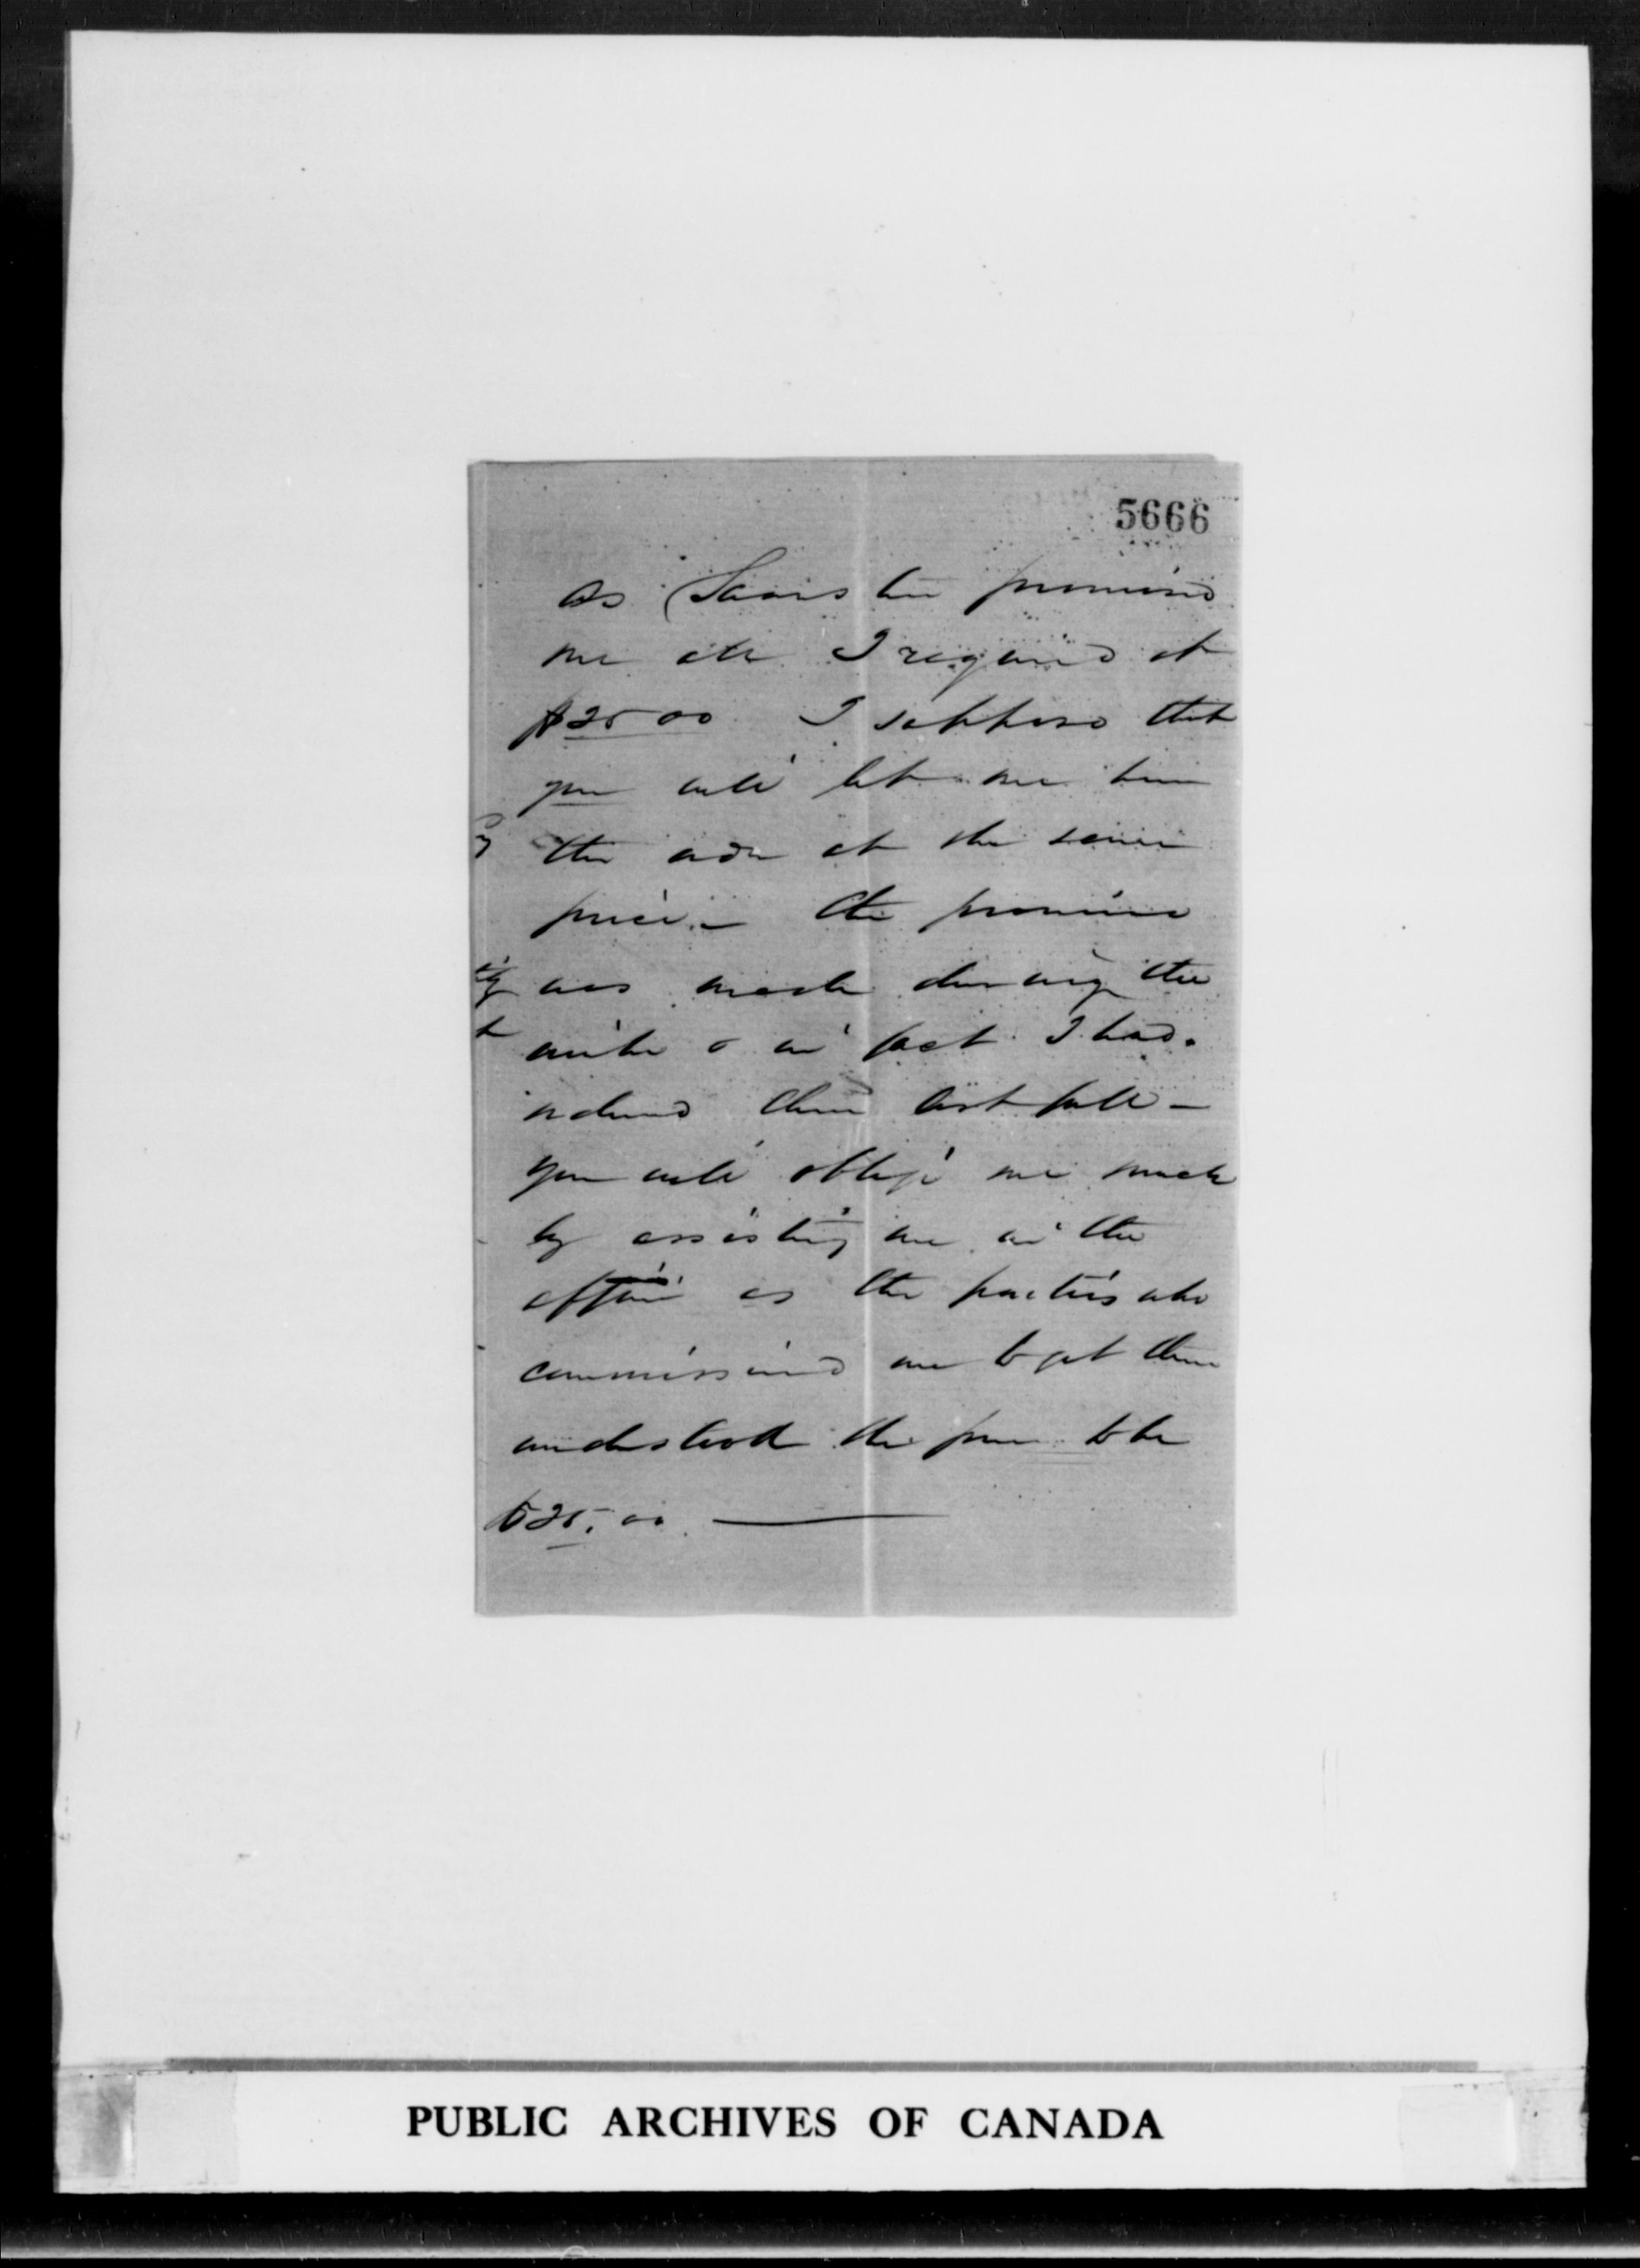 5666
As promised
me all I required at
$25.00 I suppose that
you will let me have
the at the same
price. – The promise
was made during the
winter & in fact I had
ordered them last fall –
You will oblige me much
by assisting me in the
affair as the parties who
commissioned me to get them
understood the price to be
$25.00. —
PUBLIC ARCHIVES OF CANADA